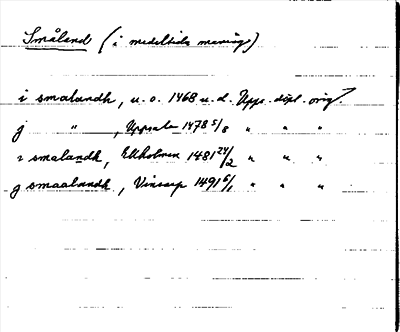 Småland (i medeltida mening)
i smalandh, u. o. 1468 u. d. Upps. dipl. orig.
j " , Uppsala 1478 5/8 " " "
i smalandh, Ekholmen 1481 24/2 " " "
j smaalandh, Vinsarp 1491 6/1 " " "